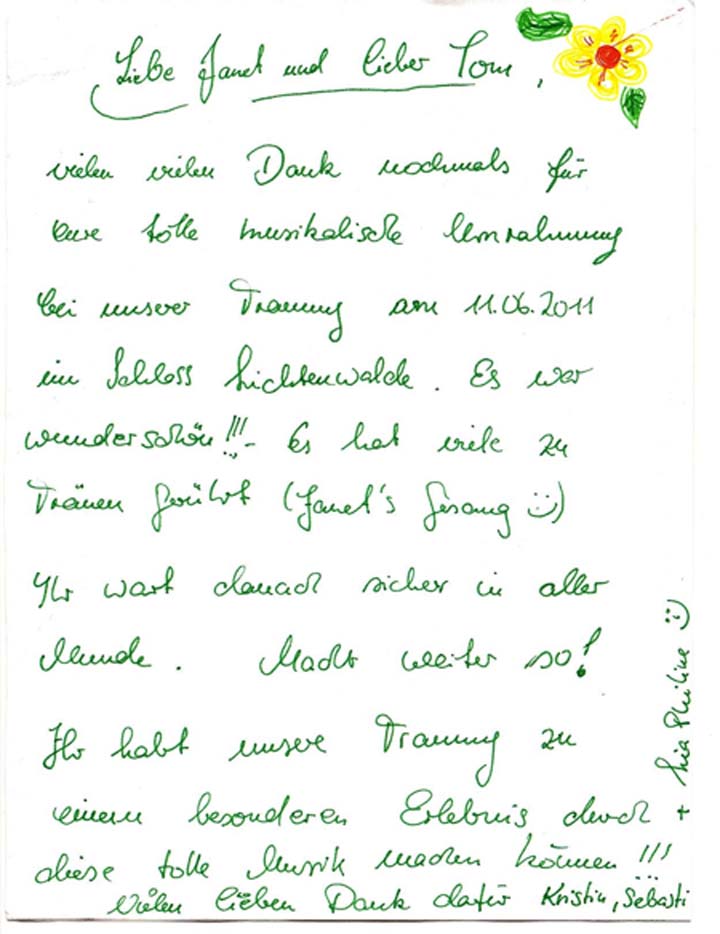 Liebe Janet und lieber Tom,
vielen vielen Dank nochmals für
eure tolle musikalische Umrahmung
bei unserer Trauung am 11.06.2011
im Schloss Lichtenwalde. Es war
wunderschön!!!- Es hat viele zu
Tränen gerührt (Janet's Gesang ü)
Ihr wart danach sicher in aller
Munde. Macht weiter so!
Ihr habt unsere Trauung zu
einem besonderen Erlebnis durch
diese tolle Musik machen können!!!
Vielen lieben Dank dafür Kristin, Sebasti
+ Mia Philine ü